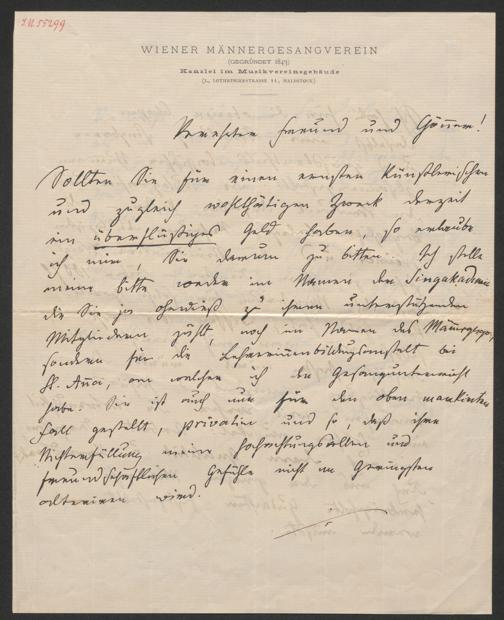 I.N. 55299
WIENER MÄNNERGESANGVEREIN
(GEGRÜNDET 1843)
Kanzlei im Musikvereinsgebäude
(I., LOTHRINGERSTRASSE 11, HALBSTOCK)
Verehrter Freund und Gönner!
Sollten Sie für einen ernsten künstlerischen
und zugleich wohlthätigen Zweck derzeit
ein überflüßiges Geld haben, so erlaube
ich mir, Sie darum zu bitten. Ich stelle
meine Bitte weder im Namen der Singakademie
die Sie ja ohnedieß zu ihren unterstützenden
Mitgliedern zählt, noch im Namen des
sondern für die Lehrerinnenbildungsanstalt bei
St. Anna, an welcher ich den Gesangunterricht
habe. Sie ist auch nur für den oben markirten
Fall gestellt, privatim und so, daß ihre
Nichterfüllung meine hochachtungsvollen und
freundschaftlichen Gefühle nicht im Geringsten
alteriren wird.